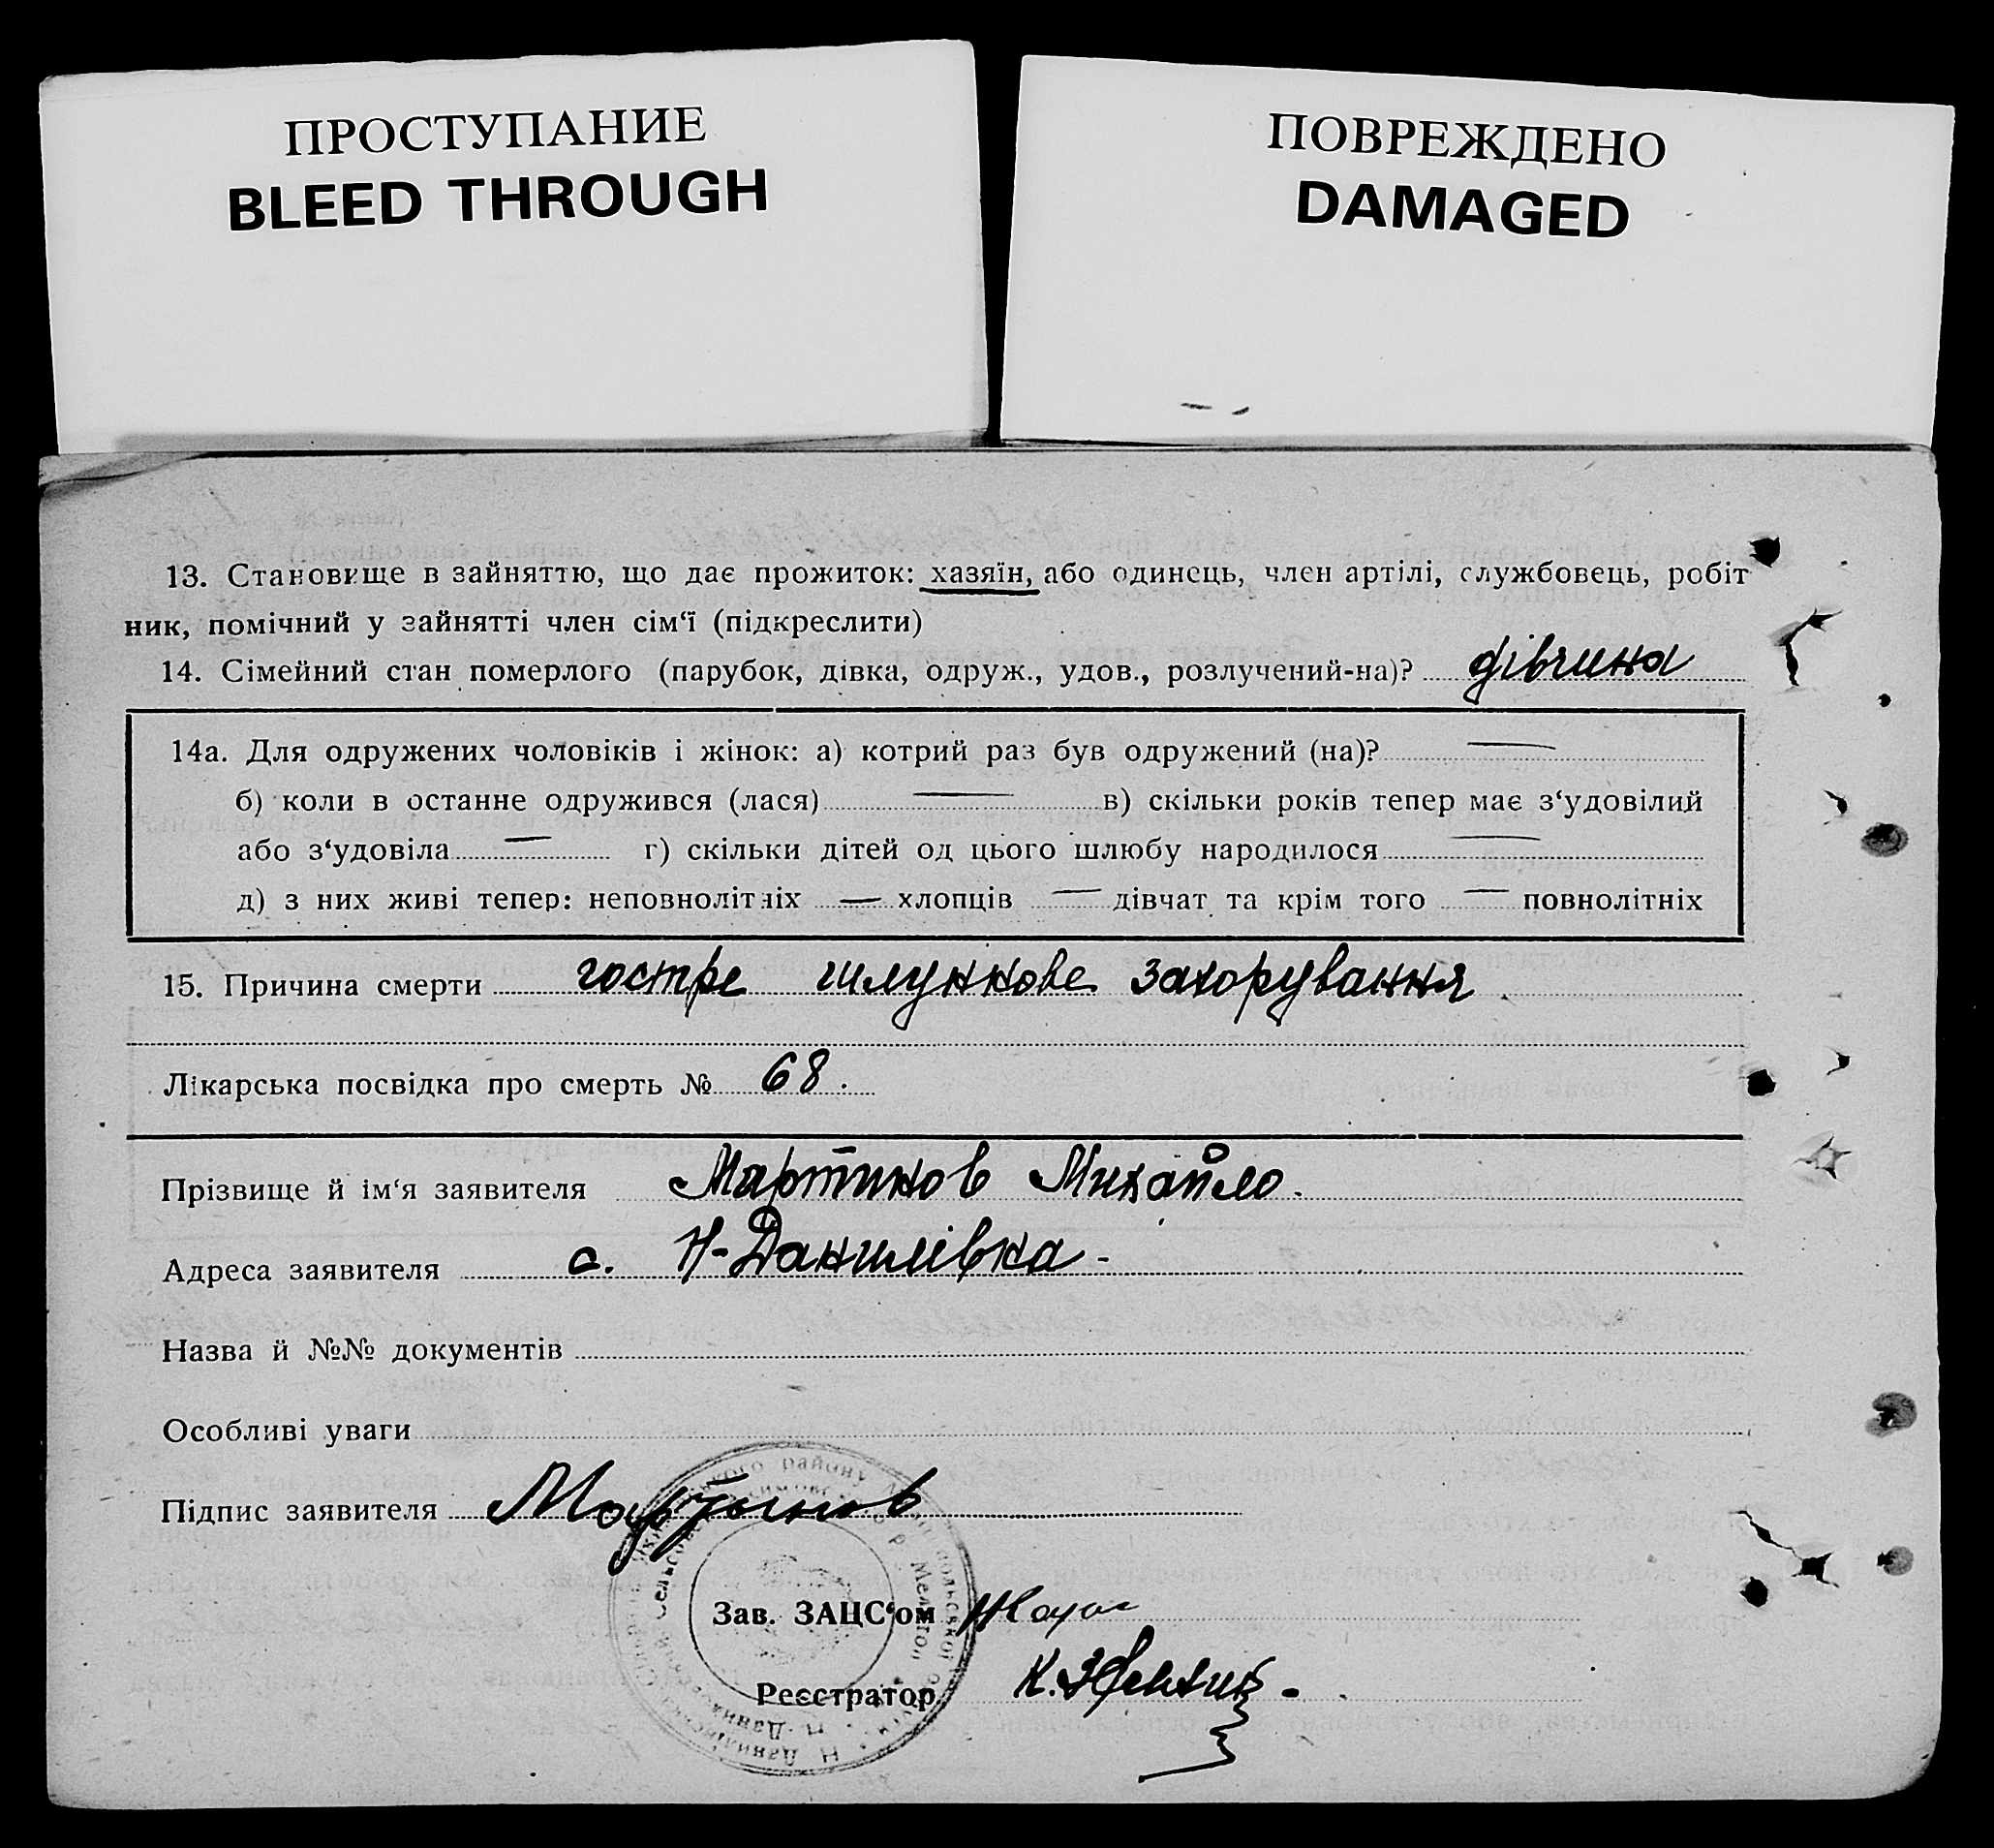 ПРОСТУПАНИЕ
BLEED THROUGH
ПОВРЕЖДЕНО
DAMAGED
13. Становище в зайняттю, що дає прожиток: хазяїн, або одинець, член артілі, службовець, робіт
ник, помічний у зайнятті член сім‘ї (підкреслити)
14. Сімейний стан померлого (парубок, дівка, одруж., удов., розлучений-на)? дівчина
14а. Для одружених чоловіків і жінок: а) котрий раз був одружений (на)? —
б) коли в останне одружився (лася) — в) скільки років тепер має з‘удовілий
або з‘удовіла — г) скільки дітей од цього шлюбу народилося —
д) з них живі тепер: неповнолітніх — хлопців — дівчат та крім того — повнолітніх
15. Причина смерти гостре шлункове захорування
Лікарська посвідка про смерть № 68.
Прізвище й ім‘я заявителя Мартинов Михайло.
Адреса заявителя с. Н-Данилівка -
Назва й №№ документів
Особливі уваги
Підпис заявителя Мартынов
району
Мелітоп
Зав. ЗАЦС‘ом
Реєстратор К.